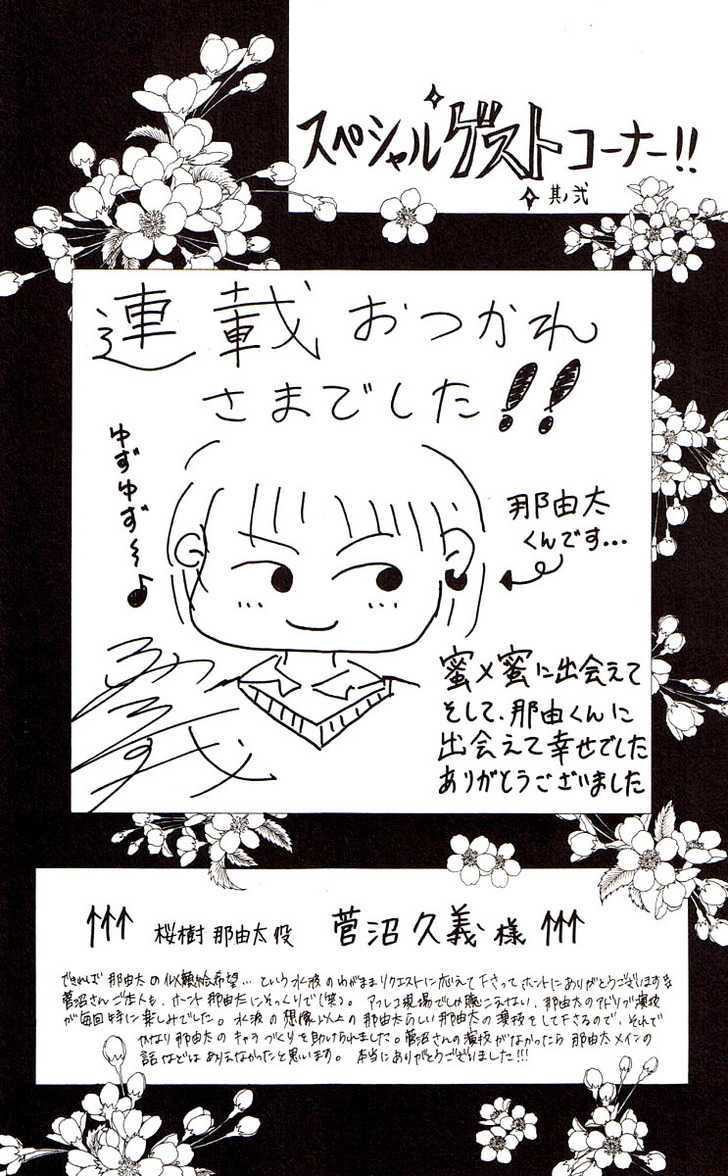 スペシャルゲストコーナー!!
其ノ弐
連載おつかれ
さまでした!!
ゆずゆず〜♪
那由太
くんです…
蜜×蜜に出会えて
そして、那由くんに
出会えて幸せでした
ありがとうございました
↑↑↑ 桜樹 那由太役 菅沼久義様 ↑↑↑
できれば 那由太の似顔絵希望… という水波のわがままリクエストに応えて下さってホントにありがとうございます
菅沼さんご本人も、ホント那由太にそっくりで(笑)。アフレコ現場でしか聴こえない、那由太のアドリブ演技
が毎回特に楽しみでした。水波の想像以上の那由太らしい那由太の演技をして下さるので、それで
かなり那由太のキャラづくりを助けられました。菅沼さんの演技がなかったら那由太メインの
話などはありえなかったと思います。本当にありがとうございました!!!